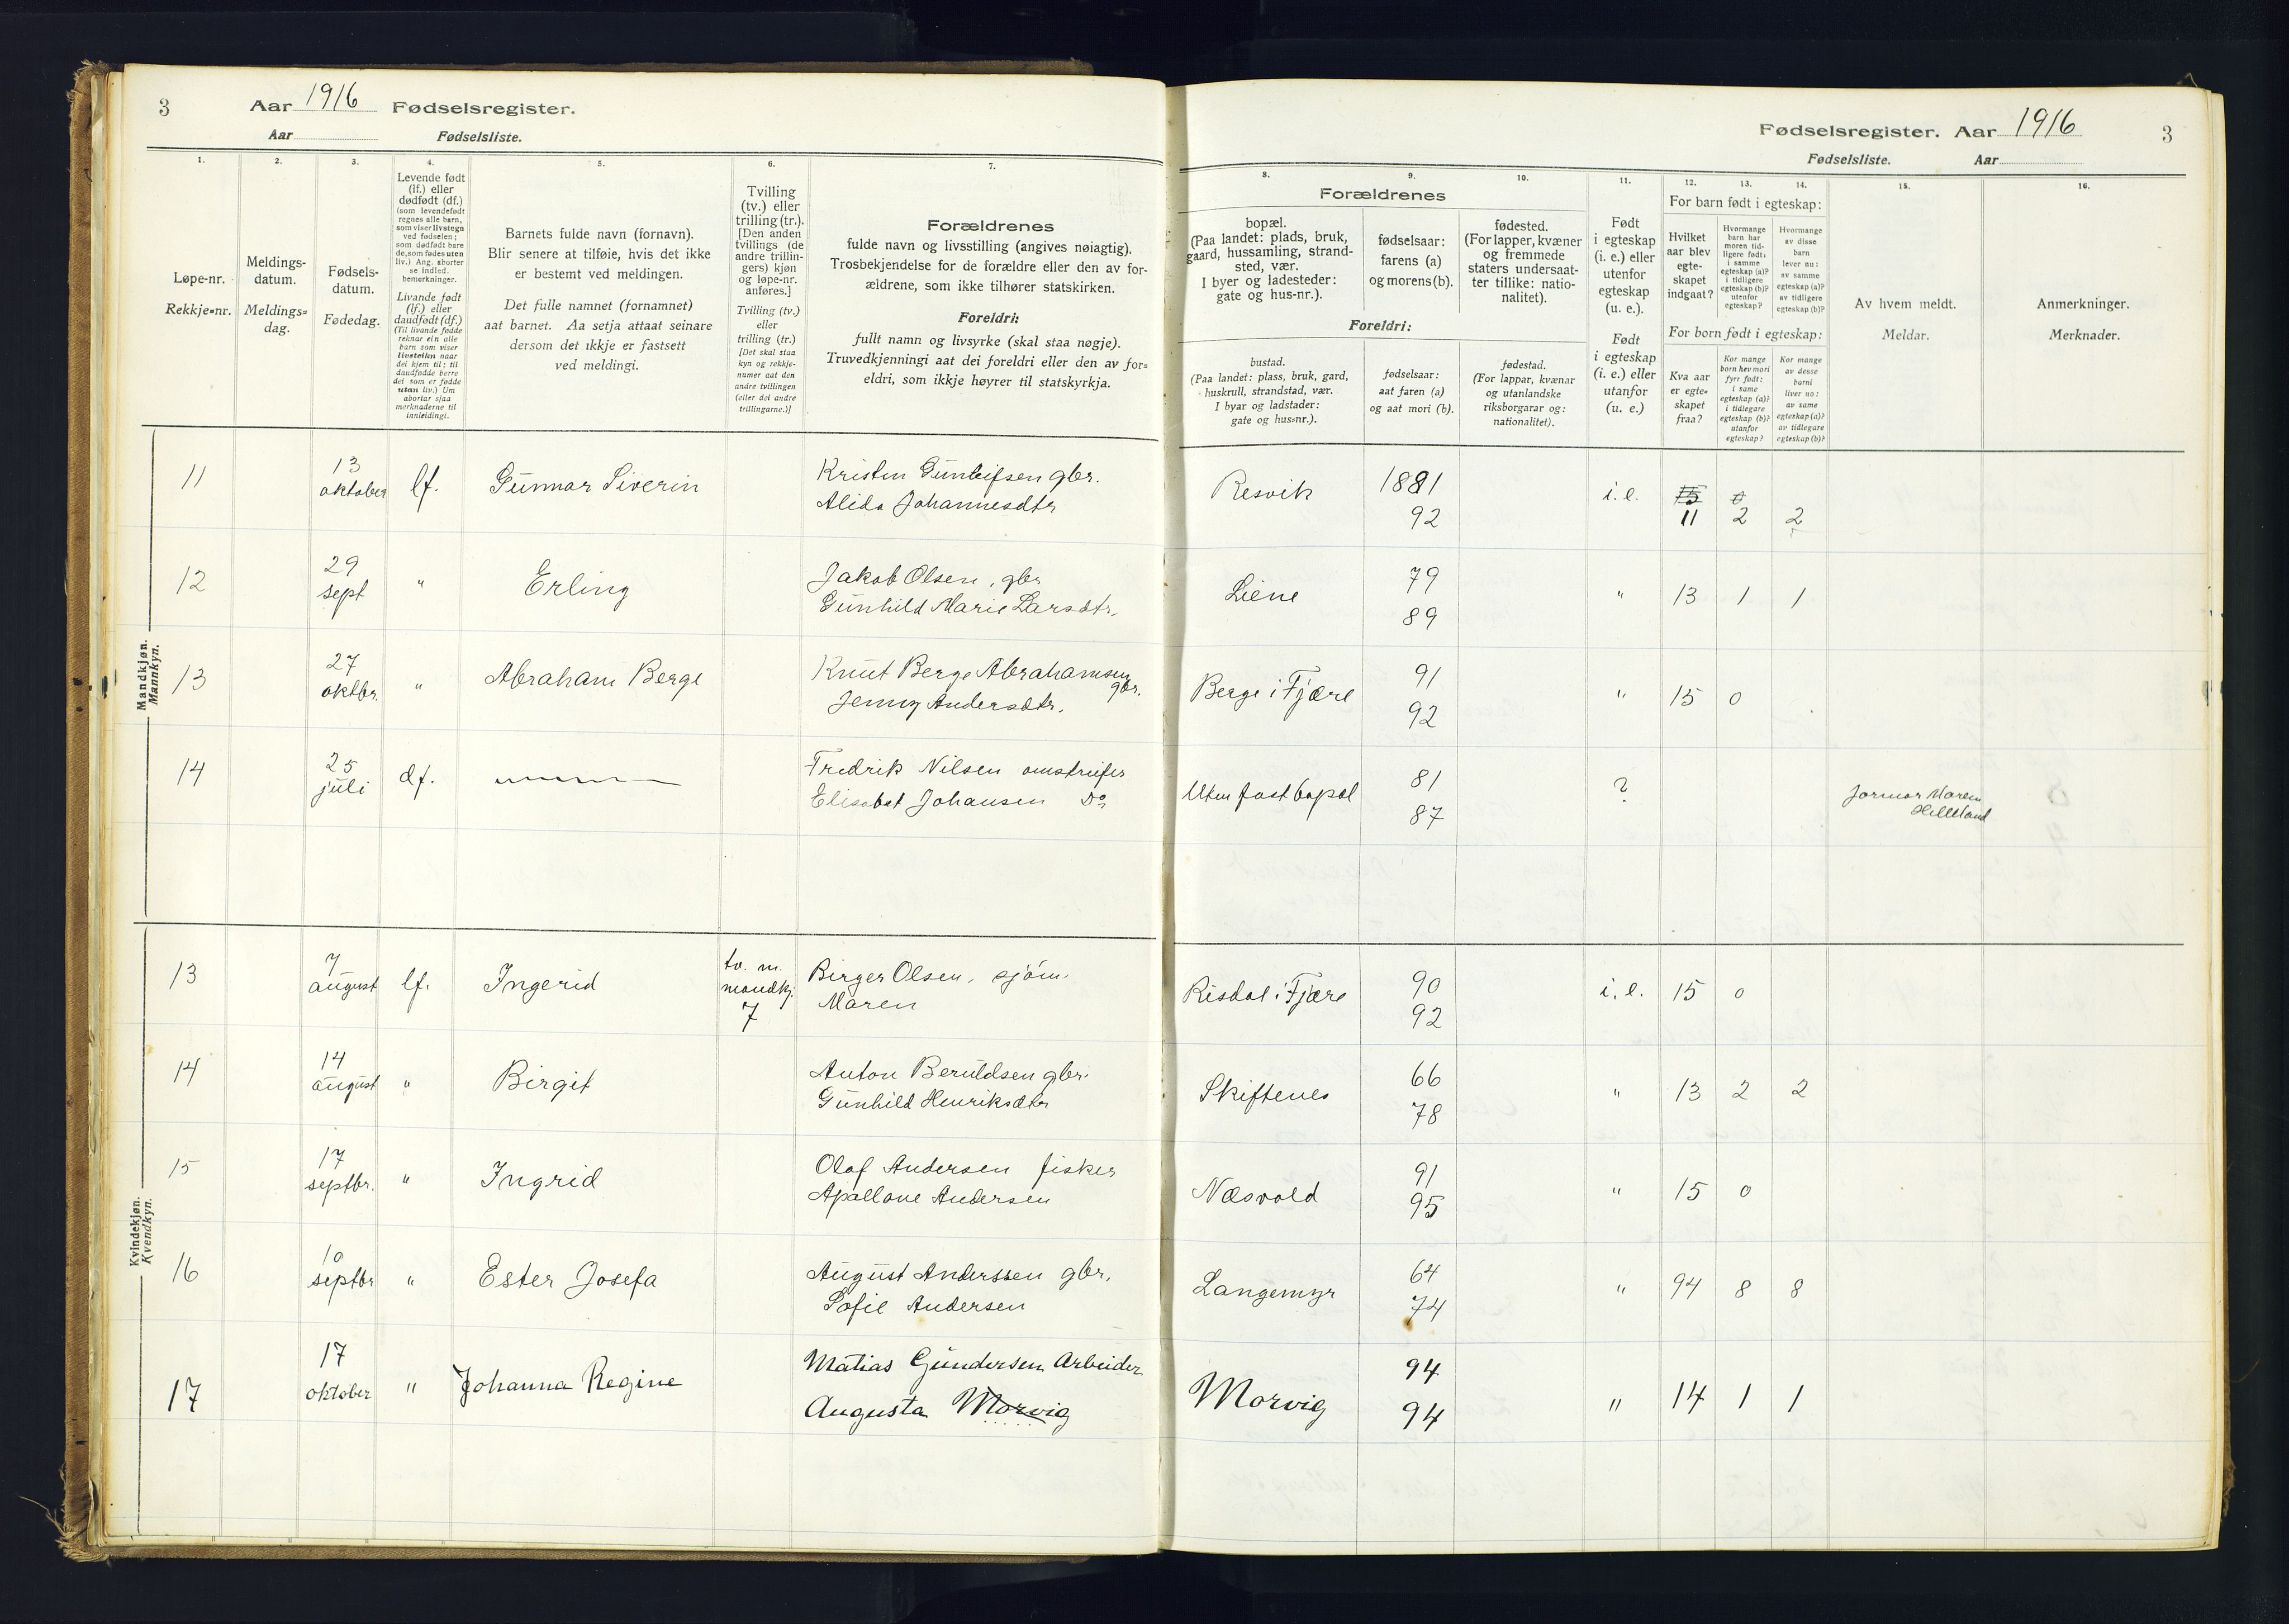 3 Aar 1916 Fødselsregister.
Aar Fødselsliste.
Fødselsregister. Aar 1916 3
Fødselsliste. Aar
1.
Løpe-nr.
Rekkje=nr.
2.
Meldings-
datum.
Meldings=
dag.
3.
Fødsels-
datum.
Fødedag.
4.
Levende født
(lf.) eller
dødfødt (df.)
(som levendefødt
regnes alle barn,
som viser livstegn
ved fødselen;
som dødfødt bare
de, som fødes uten
liv.) Ang. aborter
se indled.
bemerkninger.
Livande født
(lf.) eller
daudfødt (df.)
(Til livande fødde
reknar ein alle
barn som viser
livsteikn naar
dei kjem til; til
daudfødde berre
dei som er fødde
utan liv.) Um
abortar sjaa
merknaderne til
innleidingi.
5.
Barnets fulde navn (fornavn).
Blir senere at tilføie, hvis det ikke
er bestemt ved meldingen.
Det fulle namnet (fornamnet)
aat barnet. Aa setja attaat seinare
dersom det ikkje er fastsett
ved meldingi.
6.
Tvilling
(tv.) eller
trilling (tr.).
[Den anden
tvillings (de
andre trillin-
gers) kjøn
og løpe-nr.
anføres.]
Tvilling (tv.)
eller
trilling (tr.)
[Det skal staa
kyn og rekkje-
numer aat den
andre tvillingen
(eller dei andre
trillingarne.)]
7.
Forældrenes
fulde navn og livsstilling (angives nøiagtig).
Trosbekjendelse for de forældre eller den av for-
ældrene, som ikke tilhører statskirken.
Foreldri:
fullt namn og livsyrke (skal staa nøgje).
Truvedkjenningi aat dei foreldri eller den av for=
eldri, som ikkje høyrer til statskyrkja.
8. 9. 10.
Forældrenes
bopæl.
(Paa landet: plads, bruk,
gaard, hussamling, strand-
sted, vær.
I byer og ladesteder:
gate og hus-nr.).
fødselsaar:
farens (a)
og morens (b).
fødested.
(For lapper, kvæner
og fremmede
staters undersaat-
ter tillike: natio-
nalitet).
Foreldri:
bustad.
(Paa landet: plass, bruk, gard,
huskrull, strandstad, vær.
I byar og ladstader:
gate og hus=nr.).
fødselsaar:
aat faren (a)
og aat mori (b).
fødestad.
(For lappar, kvænar
og utanlandske
riksborgarar og:
nationalitet).
11.
Født
i egteskap
(i. e.) eller
utenfor
egteskap
(u. e.).
Født
i egteskap
(i. e.) eller
utanfor
(u. e.)
12. 13. 14.
For barn født i egteskap:
Hvilket
aar blev
egte-
skapet
indgaat?
Hvormange
barn har
moren tid-
ligere født:
i samme
egteskap (a)?
i tidligere
egteskap (b)?
utenfor
egteskap?
Hvormange
av disse
barn
lever nu:
av samme
egteskap (a)?
av tidligere
egteskap (b)?
For born født i egteskap:
Kva aar
er egte-
skapet
fraa?
Kor mange
born hev mori
fyrr født:
i same
egteskap (a)?
i tidlegare
egteskap (b)?
utanfor
egteskap?
Kor mange
av desse
barni
liver no:
av same
egteskap (a)?
av tidlegare
egteskap (b)?
15.
Av hvem meldt.
Meldar.
16.
Anmerkninger.
Merknader.
Mandkjøn.
Mannkyn.
11 13 oktober lf. Gunnar Siverin
Kristen Gunleifsen gbr.
Alida Johannesdtr
Resvik 1881 92 i.e. 15 0
11 2 2
12 29 sept " Erling
Jakob Olsen, gbr
Gunhild Marie Larsdtr.
Liene 79 89 " 13 1 1
13 27 oktbr. " Abraham Berge
Knut Berge Abrahamsen gbr.
Jenny Andersdtr.
Berge i Fjære 91 92 " 15 0
14 25 juli df.
Fredrik Nilsen omstreifer
Elisabet Johansen Do
Uten fast bopæl 81 87 ?
Jormor Maren
Hilleland
Kvindekjøn.
Kvendkyn.
13 7 august lf. Ingerid tv. m. mandkj. 7
Birger Olsen, sjöm.
Maren
Risdal i Fjære 90 92 i.e. 15 0
14 14 august " Birgit
Anton Beruldsen gbr.
Gunhild Henriksdtr
Skiftenes 66 78 " 13 2 2
15 17 septbr. " Ingrid
Olaf Andersen fisker
Apallone Andersen
Næsvold 91 95 " 15 0
16 10 septbr " Ester Josefa
August Anderssen gbr.
Sofie Andersen
Langemyr 64 74 " 94 8 8
17 17 oktober " Johanna Regine
Matias Gundersen Arbeider
Augusta Morvig
Morvig 94 94 " 14 1 1